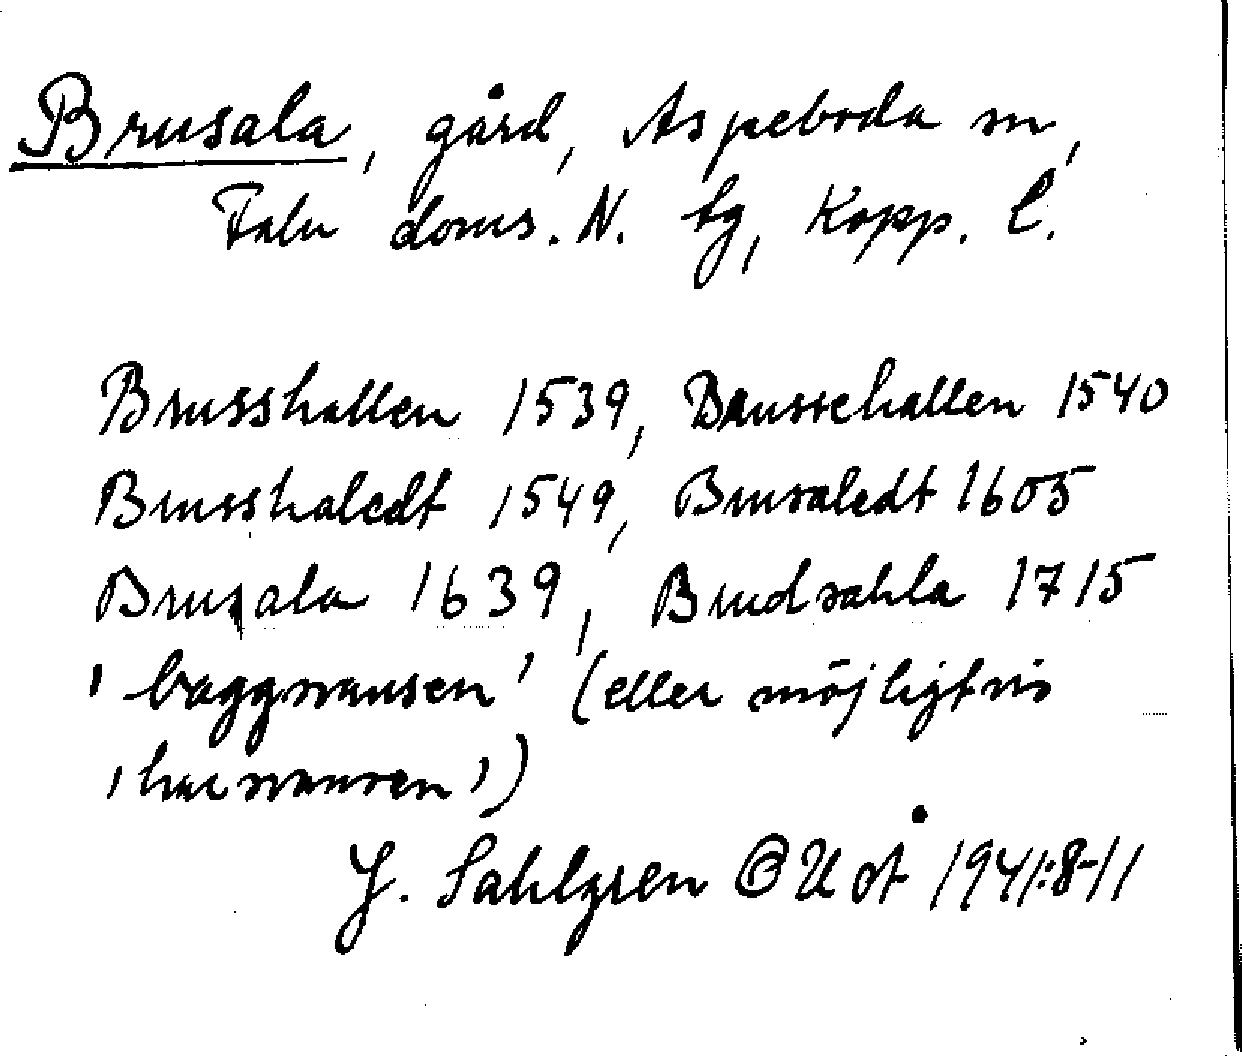 Brusala, gård, Aspeboda sn,
Falu doms. N. tg, Kopp. l.
Brusshallen 1539, Brusschallen 1540
Brusshaledt 1549, Brusaledt 1605
Brusala 1639, Brudsahla 1715
'baggsvansen' (eller möjligtvis
'harsvansen')
J. Sahlgren @ UoÅ 1941:8-11